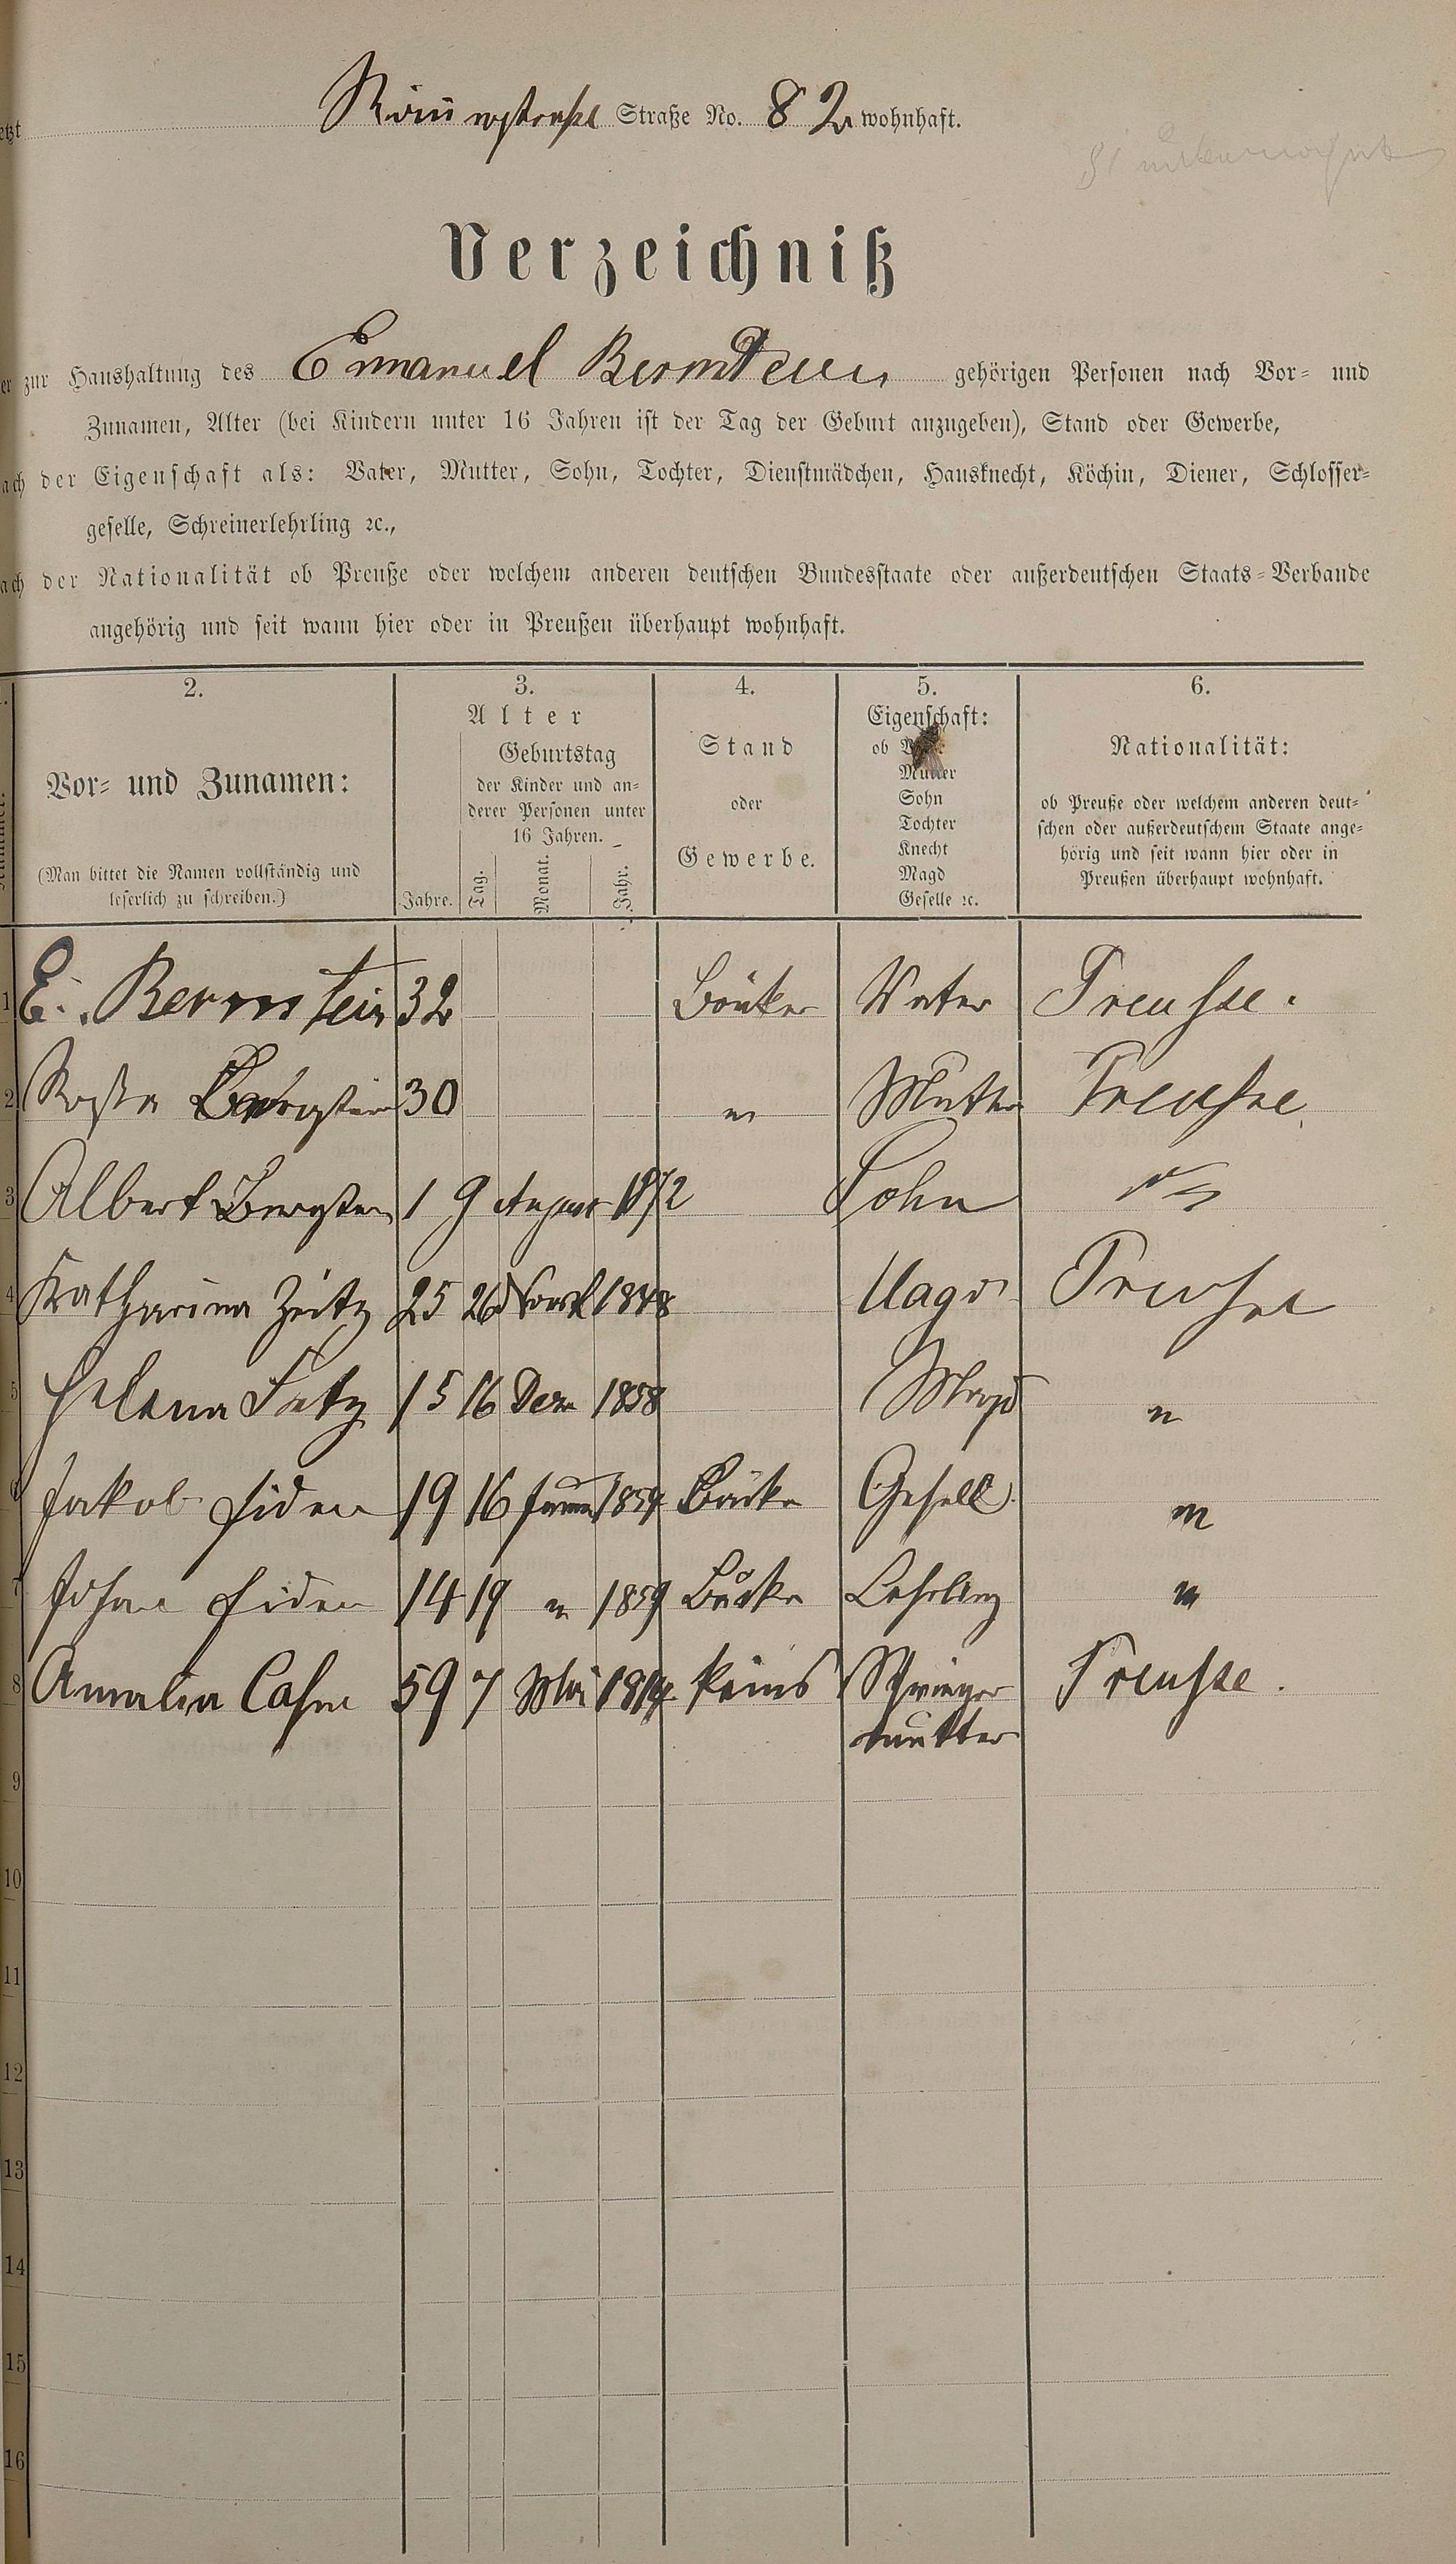 etzt Straße No. 82 wohnhaft.
Verzeichniß
er zur Haushaltung des Emanuel Bernstein gehörigen Personen nach Vor- und
Zunamen, Alter (bei Kindern unter 16 Jahren ist der Tag der Geburt anzugeben), Stand oder Gewerbe,
ach der Eigenschaft als: Vater, Mutter, Sohn, Tochter, Dienstmädchen, Hausknecht, Köchin, Diener, Schlosser-
geselle, Schreinerlehrling ꝛc.,
ach der Nationalität ob Preuße oder welchem anderen deutschen Bundesstaate oder außerdeutschen Staats-Verbande
angehörig und seit wann hier oder in Preußen überhaupt wohnhaft.
2.
Vor- und Zunamen:
(Man bittet die Namen vollständig und
leserlich zu schreiben.)
3.
Alter
Geburtstag
der Kinder und an-
derer Personen unter
16 Jahren.
Jahre. Tag. Monat. Jahr.
4.
Stand
oder
Gewerbe.
5.
Eigenschaft:
ob
Mutter
Sohn
Tochter
Knecht
Magd
Geselle ꝛc.
6.
Nationalität:
ob Preuße oder welchem anderen deut-
schen oder außerdeutschem Staate ange-
hörig und seit wann hier oder in
Preußen überhaupt wohnhaft.
1 E. Bernstein 32 Bäcker Vater Preusse.
2 30 " Mutter Preusse
3 Albert 1 9 August 1872 Sohn "
4 Katharina Zeitz 25 26 1848 Magd Preusse
5 Helena 15 16 Dez 1858 Magd "
6 Jakob Fiden 19 16 1854 Bäcker Gesell "
7 Johan Fiden 14 19 " 1859 Bäcker Lehrling "
8 Amalia Cahn 59 7 Mai 1814 keins Schwieger
mutter Preusse.
9
10
11
12
13
14
15
16